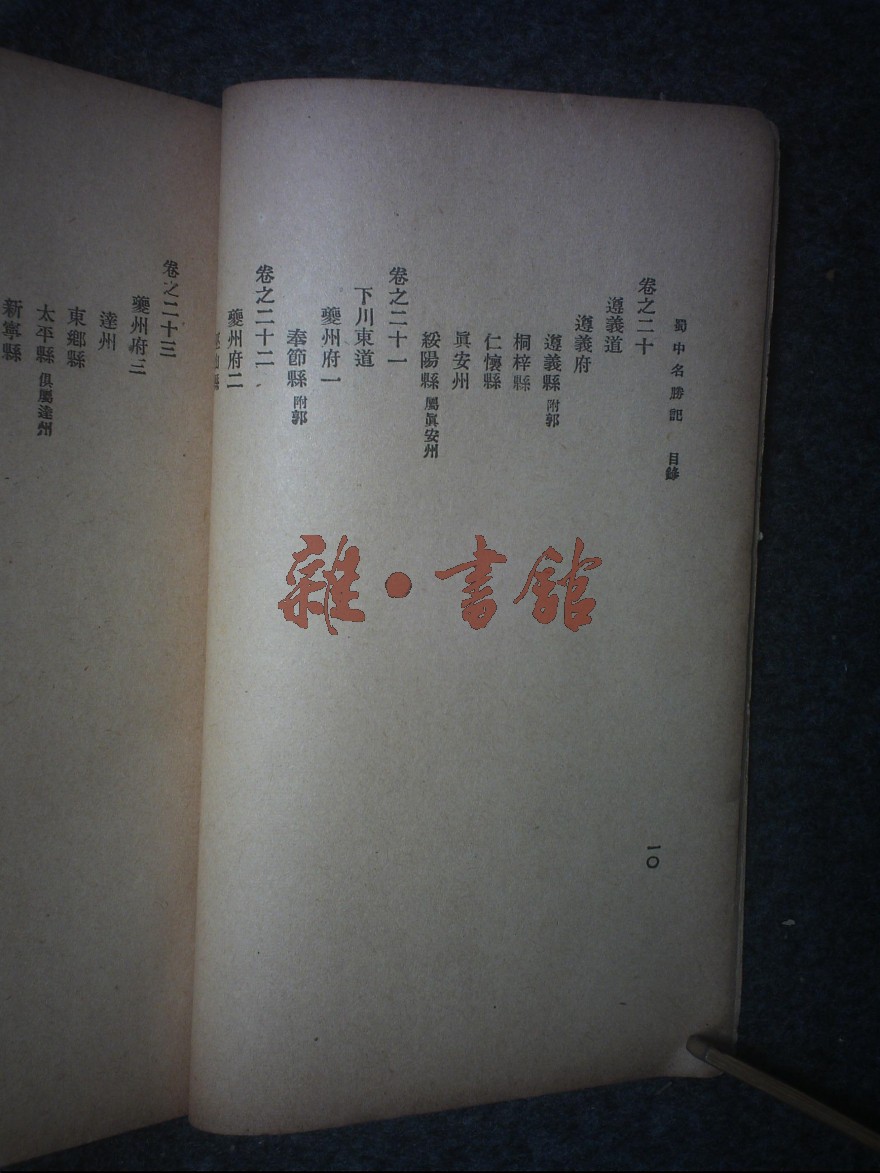 蜀中名勝記 目錄
卷之二十
遵義道
遵義府
遵義縣 附郭
桐梓縣
仁懷縣
眞安州
綏陽縣 屬眞安州
卷之二十一
下川東道
夔州府一
奉節縣 附郭
卷之二十二
夔州府二
縣
一〇
卷之二十三
夔州府三
達州
東鄉縣
太平縣 俱屬達州
新寧縣
雜·書館